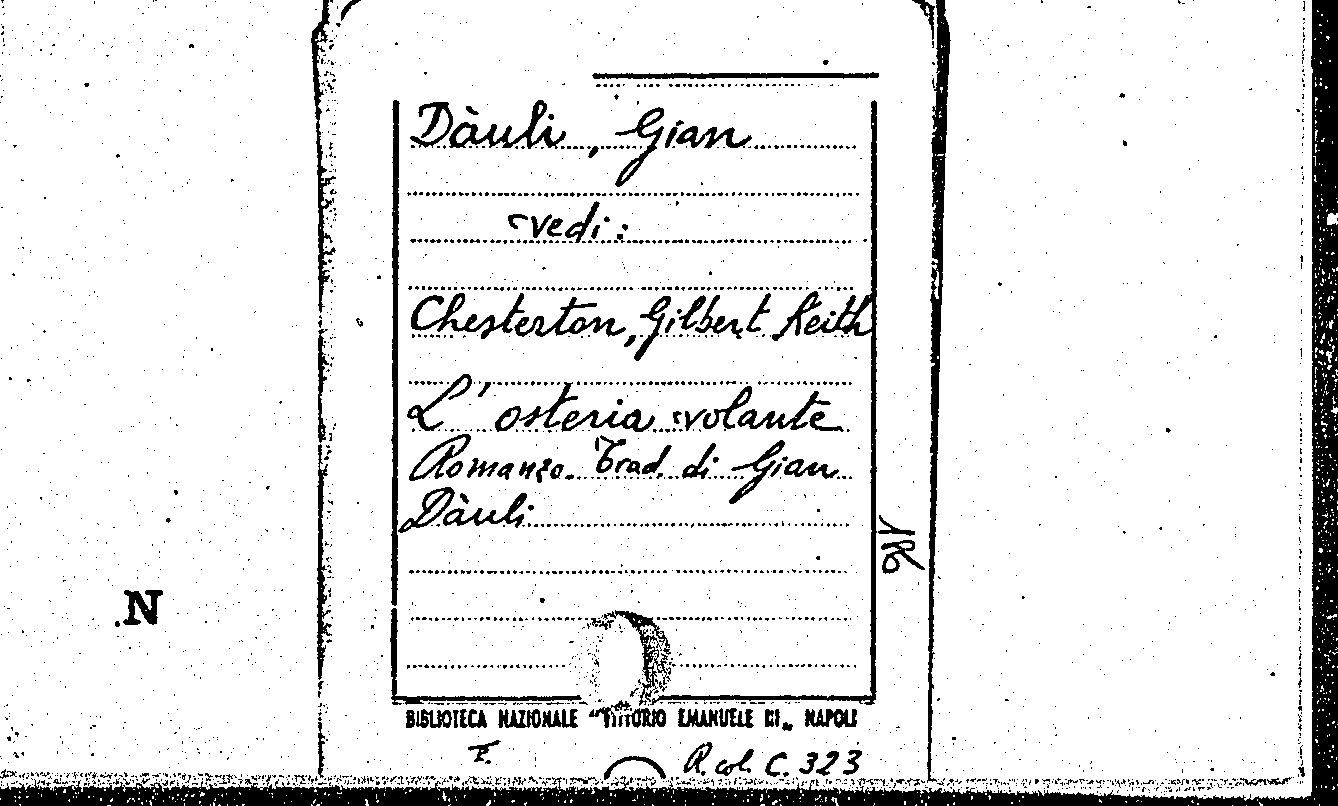 Dàuli, Gian
vedi:
Chesterton, Gilbert Keith
L'osteria volante
Romanzo. Trad. di Gian
Dàuli
.N
BIBLIOTECA NAZIONALE "VITTORIO EMANUELE III„ NAPOLI
F.
R. col. C. 323